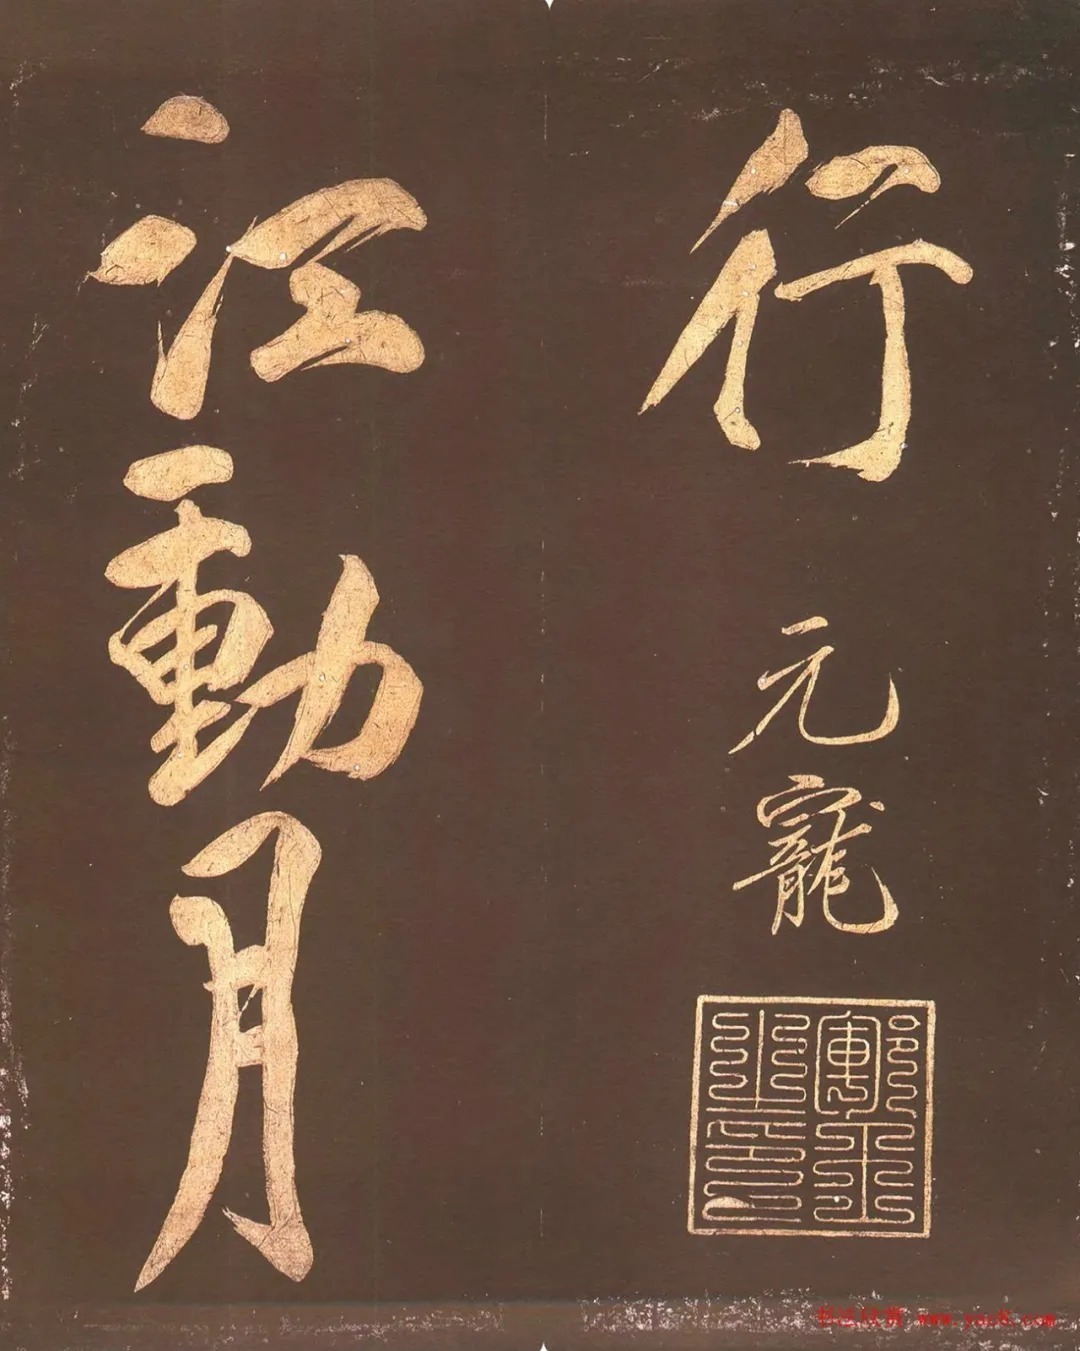 行
元寵
江動月
书法欣赏 www.yac8.com